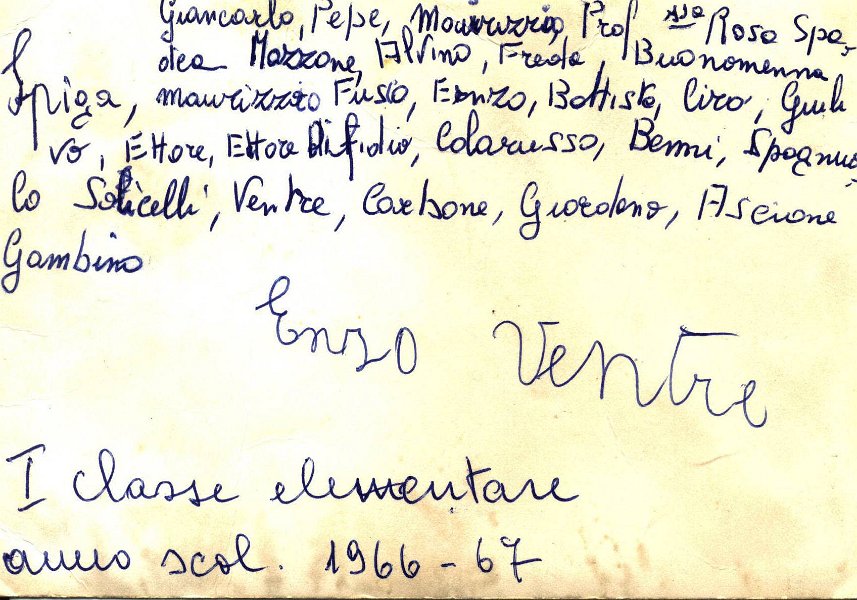 Giancarlo, Pepe, Maurizzio, Prof.ssa Rosa Spa-
dea Mazzone, Alvino, Freda, Buonomenna
Spiga, Maurizzio Fusco, Enzo, Battista, Ciro, Giuli
vo, Ettore, Ettore Difidio, Colarusso, Benni, Spagnuo-
lo Solicelli, Ventre, Carbone, Giordano, Ascione
Gambino
Enzo Ventre
I classe elementare
anno scol. 1966-67